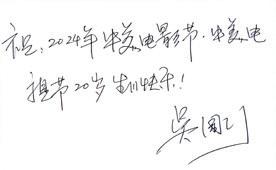 祝:2024年华美电影节·华美电
影节20岁生日快乐!
吴刚